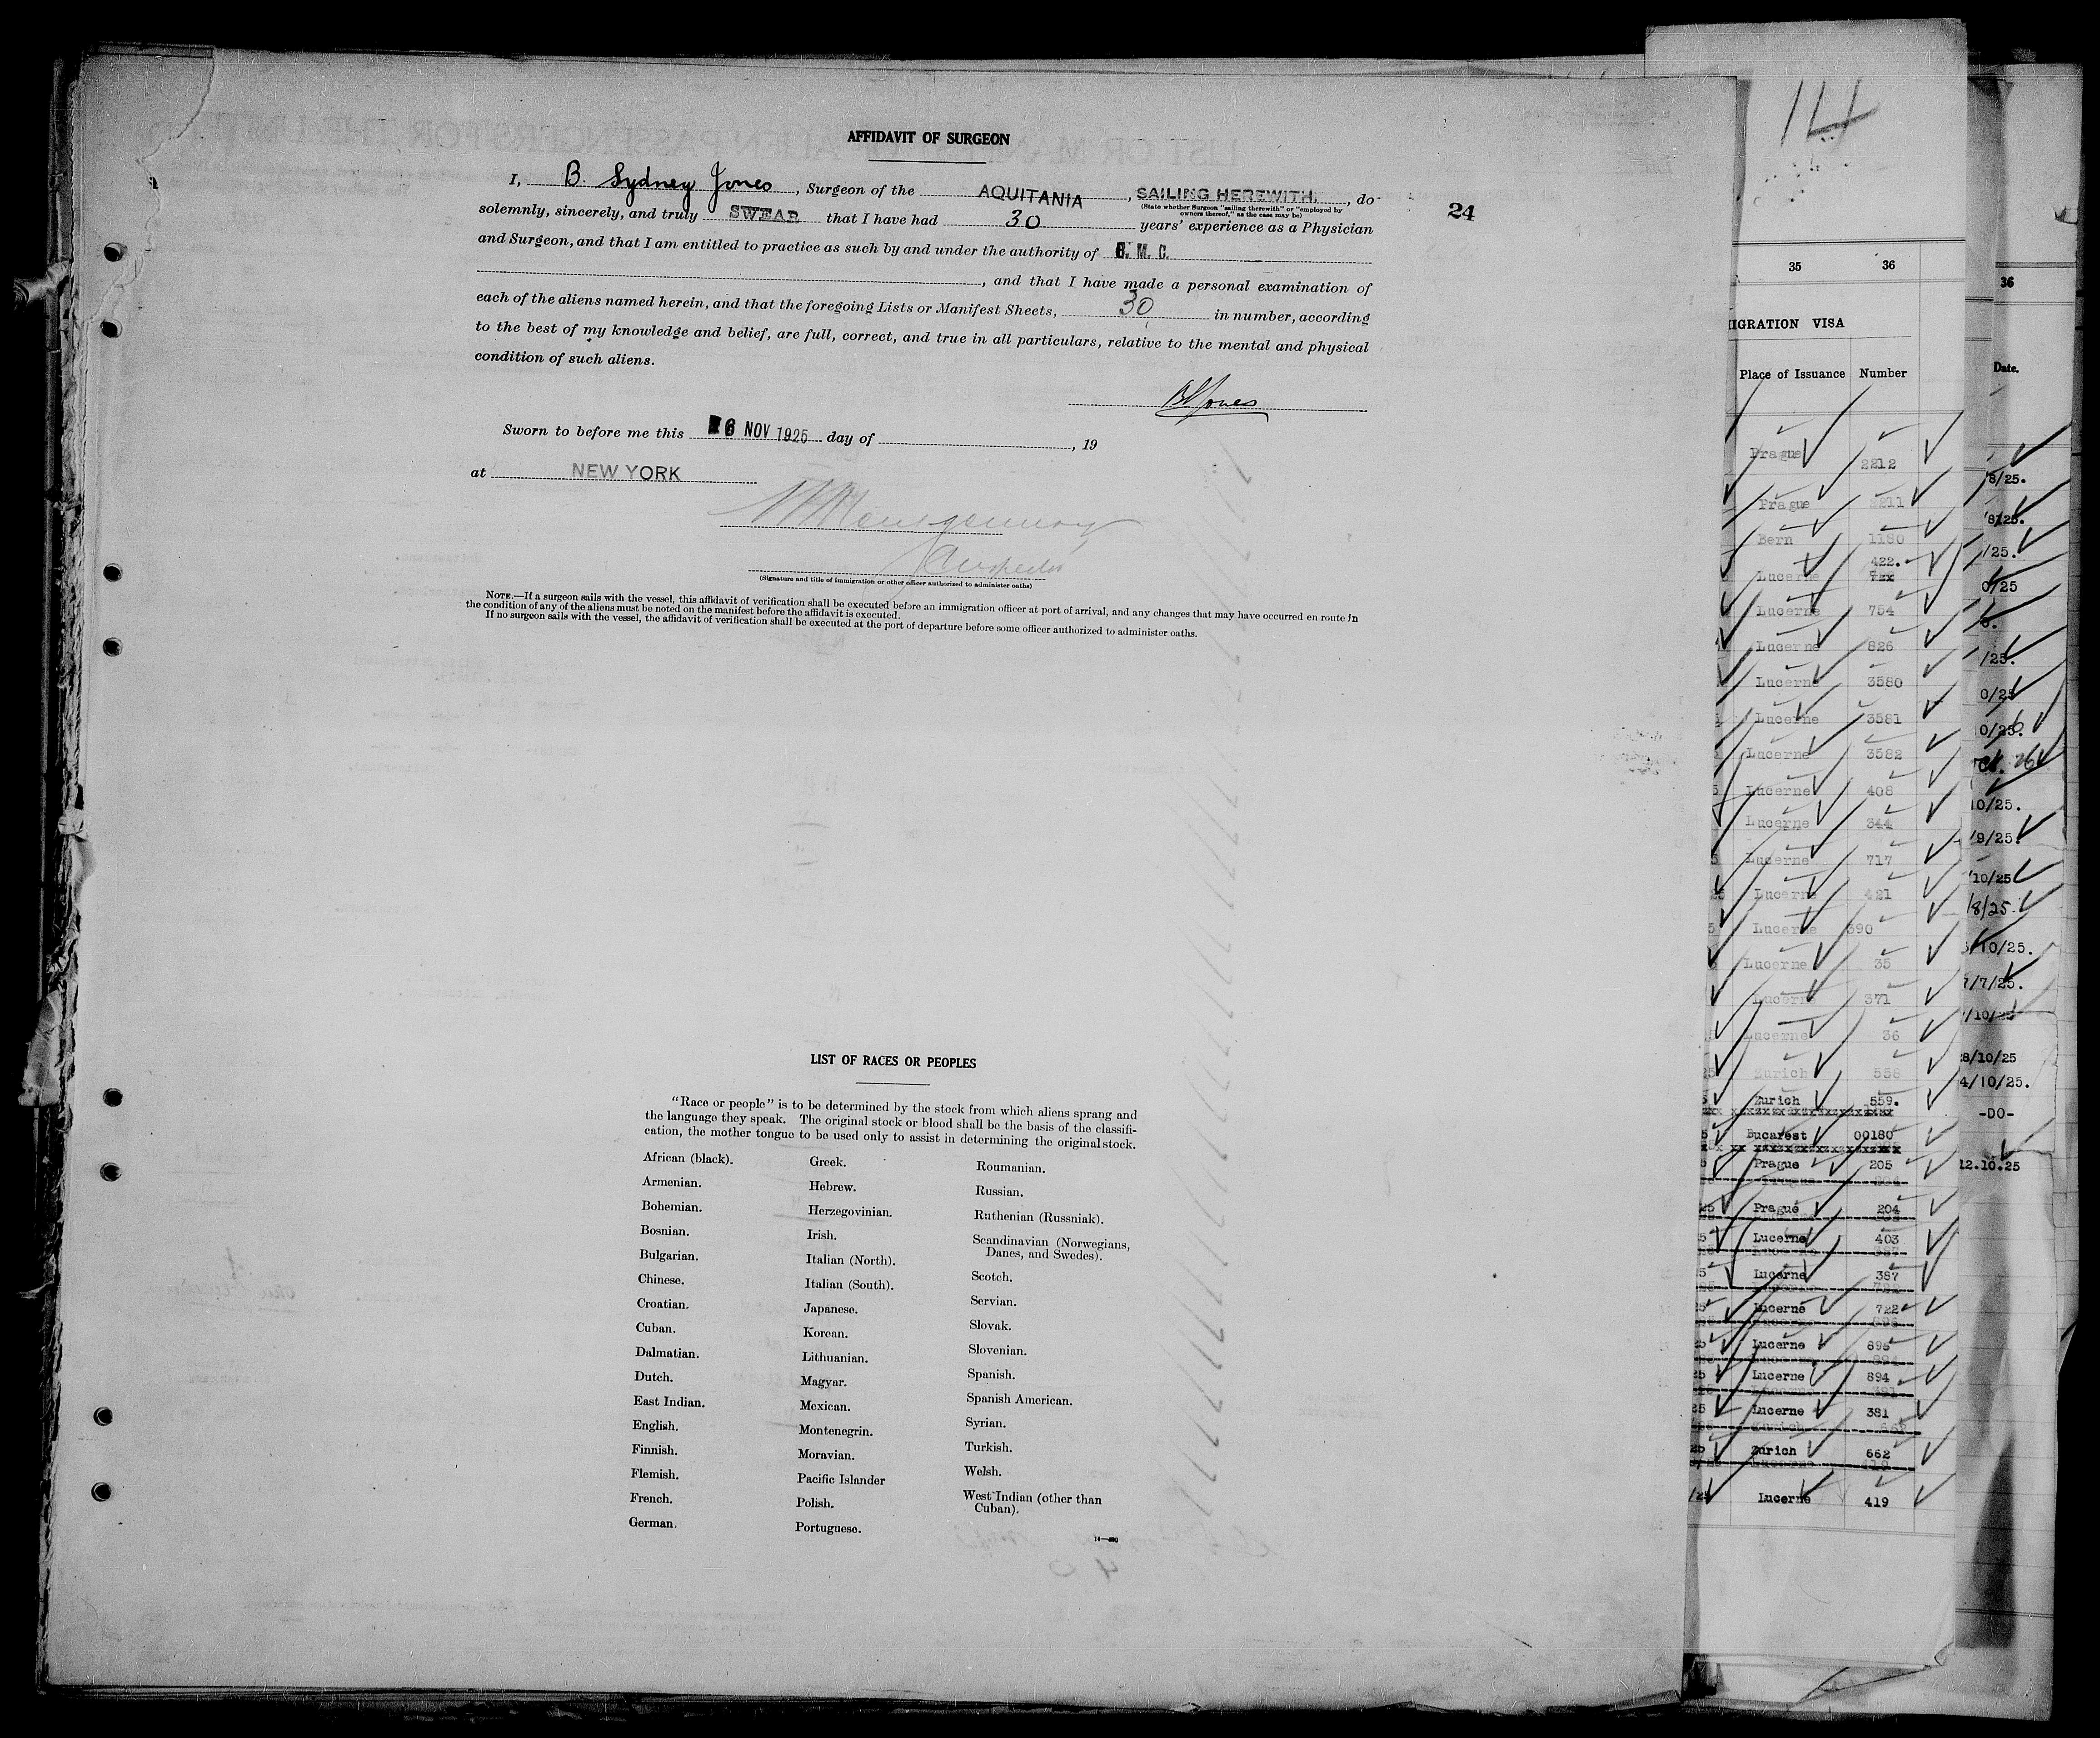 AFFIDAVIT OF SURGEON
I, B. Sydney Jones, Surgeon of the AQUITANIA, SAILING HEREWITH., do
(State whether Surgeon "sailing therewith" or "employed by
owners thereof," as the case may be)
solemnly, sincerely, and truly SWEAR that I have had 30 years' experience as a Physician
and Surgeon, and that I am entitled to practice as such by and under the authority of G. M. C.
, and that I have made a personal examination of
each of the aliens named herein, and that the foregoing Lists or Manifest Sheets, 30 in number, according
to the best of my knowledge and belief, are full, correct, and true in all particulars, relative to the mental and physical
condition of such aliens.
BSJones
Sworn to before me this 6 NOV 1925 day of , 19
at NEW YORK
Montgomery
Inspector
(Signature and title of immigration or other officer authorized to administer oaths)
NOTE.—If a surgeon sails with the vessel, this affidavit of verification shall be executed before an immigration officer at port of arrival, and any changes that may have occurred en route in
the condition of any of the aliens must be noted on the manifest before the affidavit is executed.
If no surgeon sails with the vessel, the affidavit of verification shall be executed at the port of departure before some officer authorized to administer oaths.
24
LIST OF RACES OR PEOPLES
"Race or people" is to be determined by the stock from which aliens sprang and
the language they speak. The original stock or blood shall be the basis of the classifi-
cation, the mother tongue to be used only to assist in determining the original stock.
African (black).
Armenian.
Bohemian.
Bosnian.
Bulgarian.
Chinese.
Croatian.
Cuban.
Dalmatian.
Dutch.
East Indian.
English.
Finnish.
Flemish.
French.
German.
Greek.
Hebrew.
Herzegovinian.
Irish.
Italian (North).
Italian (South).
Japanese.
Korean.
Lithuanian.
Magyar.
Mexican.
Montenegrin.
Moravian.
Pacific Islander
Polish.
Portuguese.
Roumanian.
Russian.
Ruthenian (Russniak).
Scandinavian (Norwegians,
Danes, and Swedes).
Scotch.
Servian.
Slovak.
Slovenian.
Spanish.
Spanish American.
Syrian.
Turkish.
Welsh.
West Indian (other than
Cuban).
14
35 36
IGRATION VISA
Place of Issuance Number
Prague 2212
Prague 2211
Bern 1180
422.
Lucerne
Lucerne 754
Lucerne 826
Lucerne 3580
Lucerne 3581
Lucerne 3582
Lucerne 408
Lucerne 344
Lucerne 717
Lucerne 421
Lucerne 390
Lucerne 35
Lucerne 371
Lucerne 36
Zurich 558
Zurich 559.
Bucarest 00180
Prague 205
Prague 204
Lucerne 403
Lucerne 387
Lucerne 722
Lucerne 895
Lucerne 894
Lucerne 381
Zurich 662
Lucerne 419
36
Date.
8/25.
8/25.
/25.
0/25
/25.
0/25
0/25.
10/25.
/9/25.
/10/25
/8/25.
/10/25.
7/7/25.
/10/25
28/10/25
4/10/25.
-DO-
12.10.25